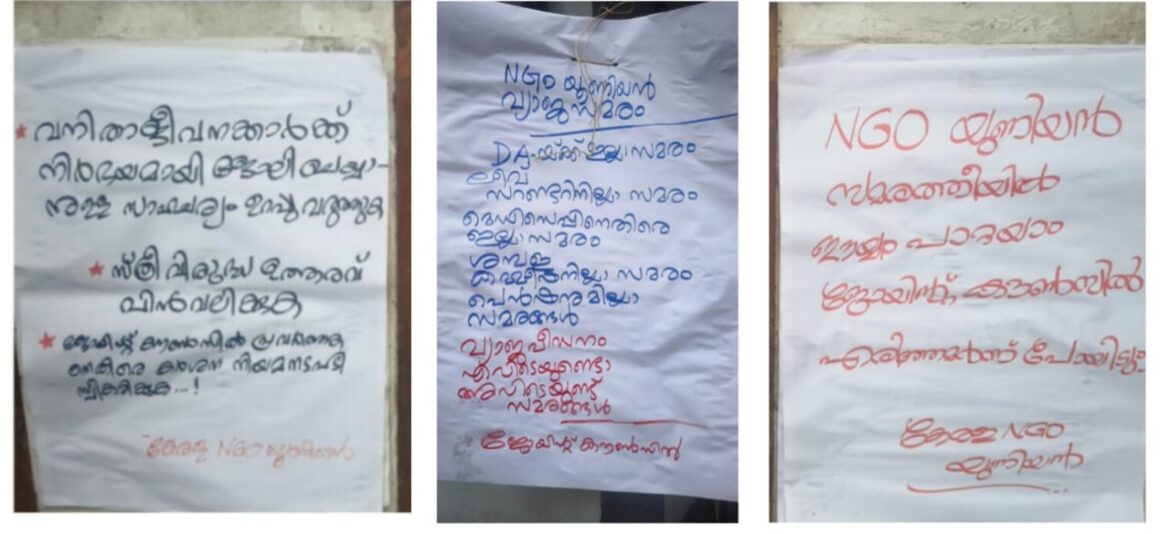 ★ വനിതാജീവനക്കാർക്ക്
നിർഭയമായി ജോലി ചെയ്യാ-
നുള്ള സാഹചര്യം ഉറപ്പു വരുത്തുക
★ സ്ത്രീ വിരുദ്ധ ഉത്തരവ്
പിൻവലിക്കുക
★ ജോയിന്റ് കൗൺസിൽ പ്രവർത്തക
നെതിരെ കർശന നിയമനടപടി
സ്വീകരിക്കുക...!
കേരള NGO യൂണിയൻ
NGO യൂണിയൻ
വ്യാജസമരം
DA-യ്ക്ക് ഇല്ലാ സമരം
ലീവ്
സറണ്ടറിനില്ലാ സമരം
മെഡിസെപ്പിനെതിരെ
ഇല്ലാ സമരം
ശമ്പള
കമ്മീഷനില്ലാ സമരം
പെൻഷനുമില്ലാ
സമരങ്ങൾ
വ്യാജപീഡനം
എവിടെയുണ്ടോ
അവിടെയുണ്ട്
സമരങ്ങൾ
ജോയിന്റ് കൗൺസിൽ
NGO യൂണിയൻ
സമരത്തീയിൽ
ഈയ്യം പാറ്റയാം
ജോയിന്റ് കൗൺസിൽ
എരിഞ്ഞമർന്ന് പോയിടും
കേരള NGO
യൂണിയൻ